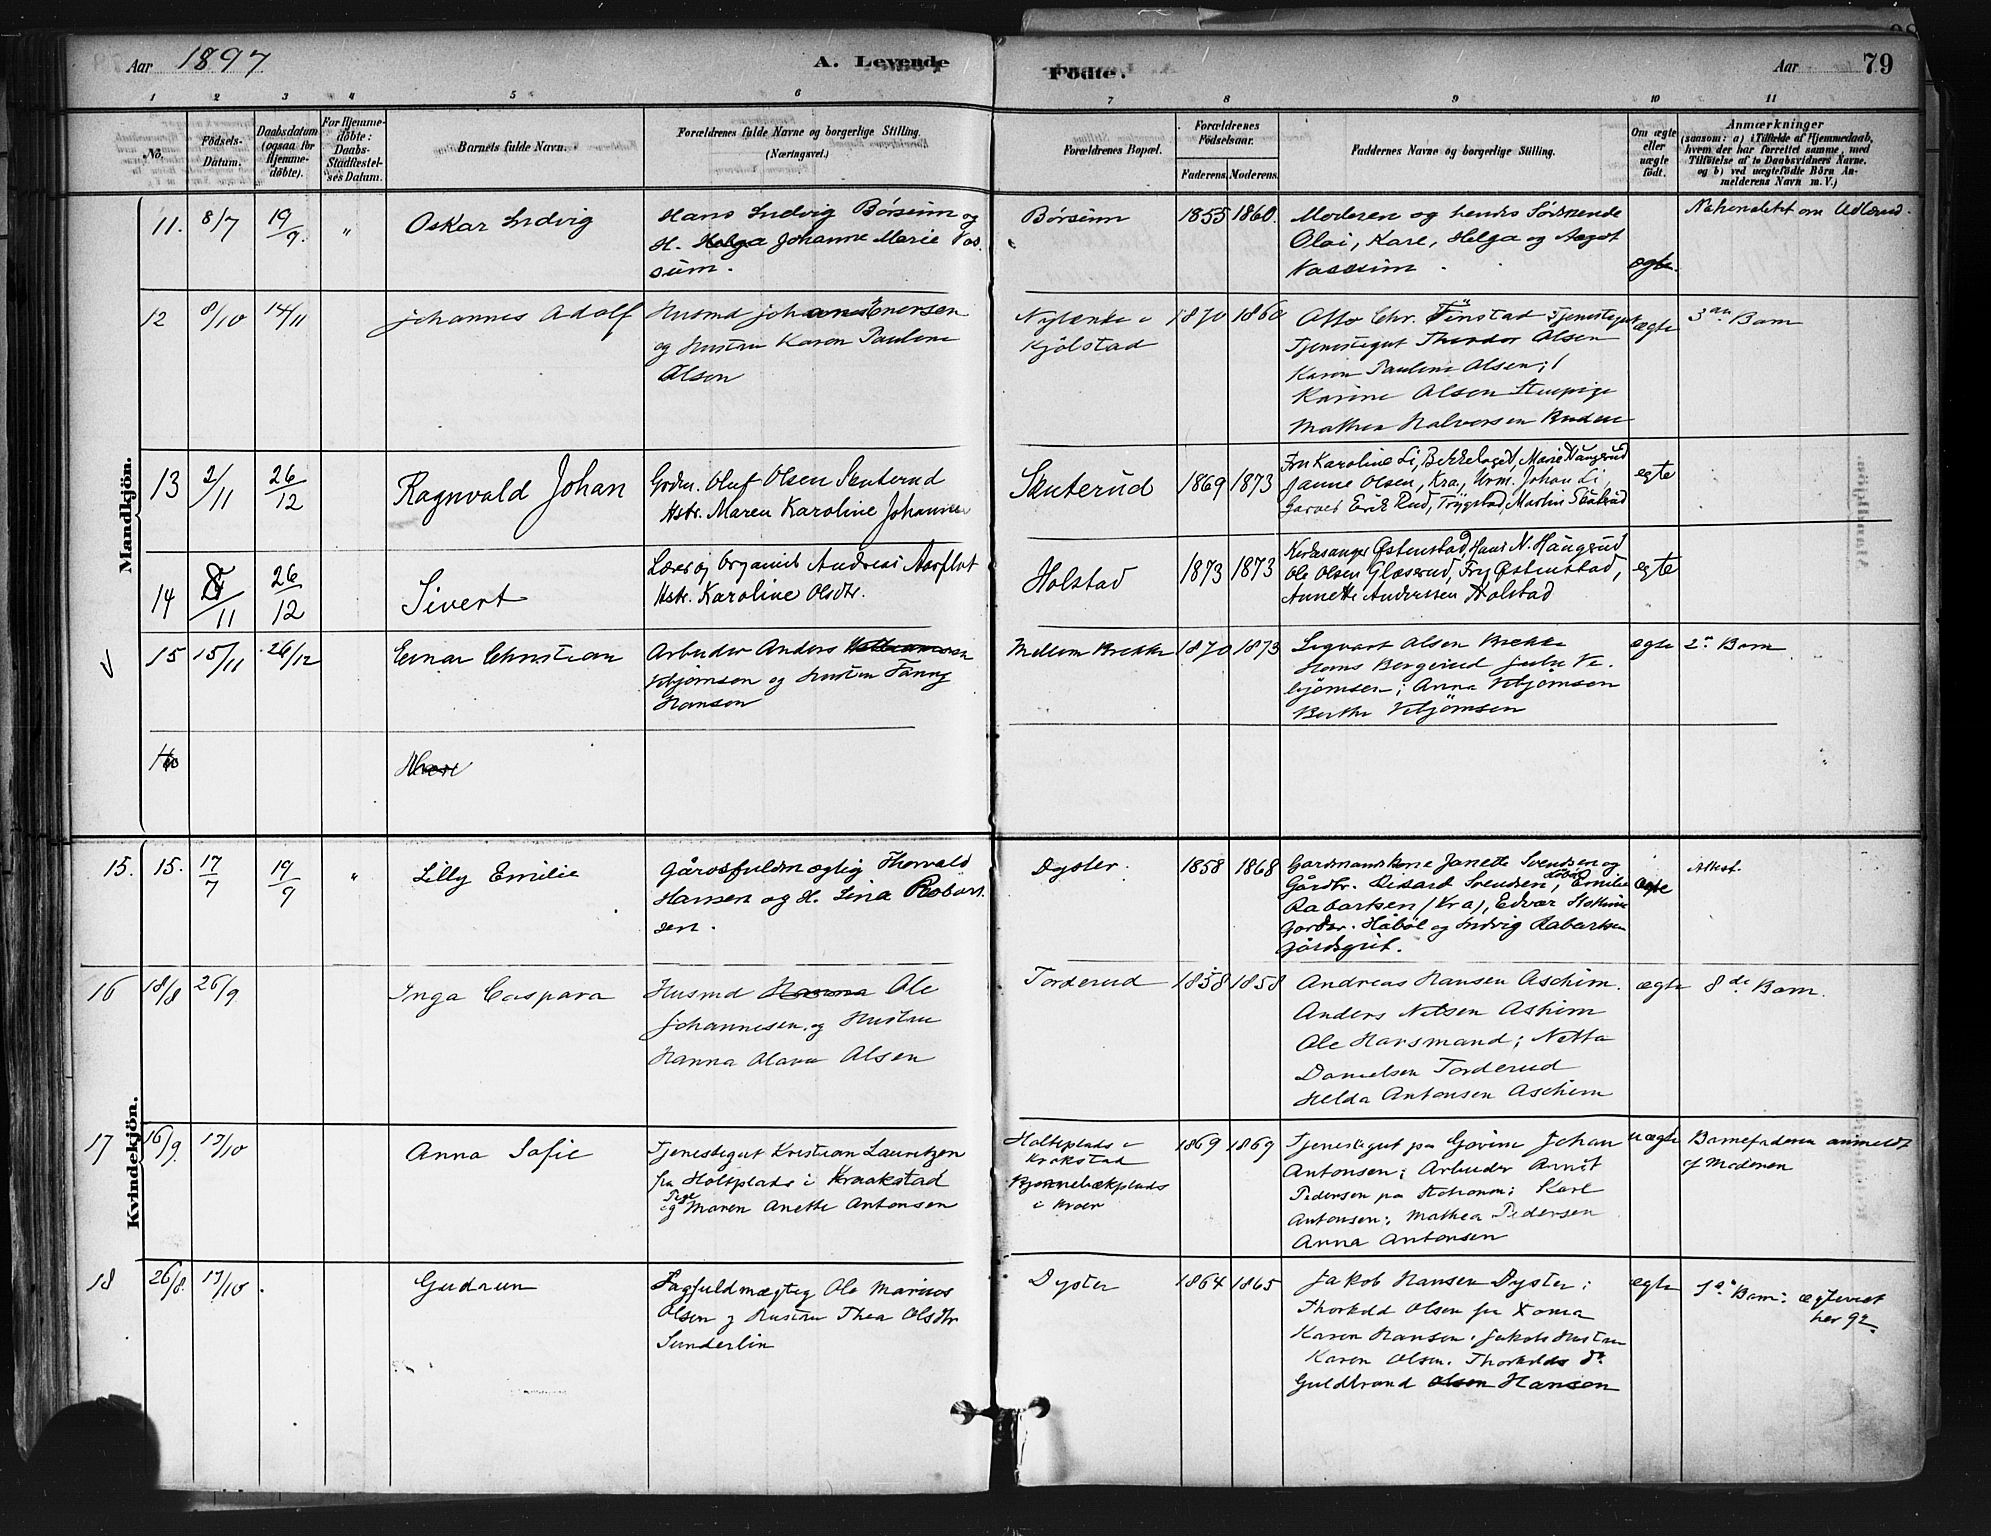 Aar 1897
A. Levende
Födte.
Aar
79
1 2 3 4 5 6 7 8 9 10 11
No.
Födsels-
Datum.
Daabsdatum
(ogsaa for
Hjemme-
döbte).
For Hjemme-
döbte:
Daabs-
Stadfæstel-
ses Datum.
Barnets fulde Navn.
Forældrenes fulde Navne og borgerlige Stilling.
(Næringsvei.)
Forældrenes Bopæl.
Forældrenes
Födselsaar.
Faderens. Moderens.
Faddernes Navne og borgerlige Stilling.
Om ægte
eller
uægte
født.
Anmærkninger
(saasom: a) i Tilfælde af Hjemmedaab,
hvem der har forrettet samme, med
Tilföielse af to Daabsvidners Navne.
og b) ved uægtefödte Börn An-
melderens Navn m. V.)
Mandkjön.
11. 8/7 19/9. " Oskar Ludvig
Hans Ludvig Børsum og
H. Helga Johanne Marie Vos-
sum.
Børsum 1855 1860.
Moderen og hendes Södskende
Olai, Kare, Helga og Aagot
ægte.
12 8/10 14/11 Johannes Adolf
Husmd Johannes Enersen
og Hustru Karen Pauline
Olsen
Nylænde i
Kjølstad
1870 1860
Otto Chr. Finstad Tjenestegut
Tjenestegut Theodor Olsen
Karen Pauline Olsen;
Karine Olsen
Mathea Halvorsen
ægte 3die Barn
13 2/11 26/12 Ragnvald Johan
Grdm. Oluf Olsen Skuterud
Hstr. Maren Karoline Johannes
Skuterud 1869 1873
Fru Karoline Li, Bekkelaget, Marie Haugerud
Janne Olsen, Kra, Urm. Johan Li,
Garver Erik Rud, Trygstad, Martin Skuterud
egte
14 /11 26/12 Sivert
Lærer og Organist Andreas Aarflot
Hstr. Karoline Olsdtr.
Holstad 1873 1873
Kirkesanger Østenstad, Hans N. Haugerud
Ole Olsen Glæserud, Fru Østenstad,
Annette Anderssen Holstad
egte
15 15/11 26/12 Einar Christian
Arbeider Anders
Vebjørnsen og Hustru Fanny
Hansen
Mellem Brekke 1870 1873
Sigvart Olsen Brekke
Hans Bergerud Julie Ve-
bjørnsen; Anna Vebjørnsen
Berthe Vebjørnsen
ægte 2det Barn
Kvindekjön.
15. 15. 17/7 19/9 " Lilly Emilie
Gårdsfuldmægtig Thorvald
Hansen og H. Lina Robart-
sen.
Dyster. 1858 1868
Gardmandskone Janette Svendsen og
Gårdbr. Rikard Svendsen, Emilie
Rabartsen (Kra), Edvar
Gardbr. Håbøl og Ludvig Rabartsen
Gårdsgut.
ægte Attest.
16 18/8 26/9 Inga Caspara
Husmd Hanna Ole
Johannesen og Hustru
Hanna Olava Olsen
Torderud 1858 1858
Andreas Hansen Aschim.
Anders Nilsen Askim
Ole Horsmand; Netta
Danielsen Torderud
Helda Antonsen Aschim
ægte 8de Barn.
17 16/9. 17/10 Anna Sofie
Tjenestegut Kristian Lauritzen
fra Holtsplads i Kraakstad
og Pige Maren Anette Antonsen
Holtsplads i
Krokstad
Bjørnebækplads
i Kroer
1869 1869
Tjenestegut paa Govim Johan
Antonsen; Arbeider Arnt
Pedersen paa Stationen; Karl
Antonsen; Mathea Pedersen
Anna Antonsen
uægte
Barnefaderen anmeldt
af Moderen
18 26/8. 17/10. Gudrun
Sagfuldmægtig Ole Marinus
Olsen og Hustru Thea Olsdtr
Sunderlin
Dyster 1864 1865
Jakob Hansen Dyster;
Thorkild Olsen fra
Karen Hansen. Jakobs Hustru
Karen Olsen. Thorkilds do.
Guldbrand Olsen Hansen
ægte
1ste Barn: ægteviet
her 92.